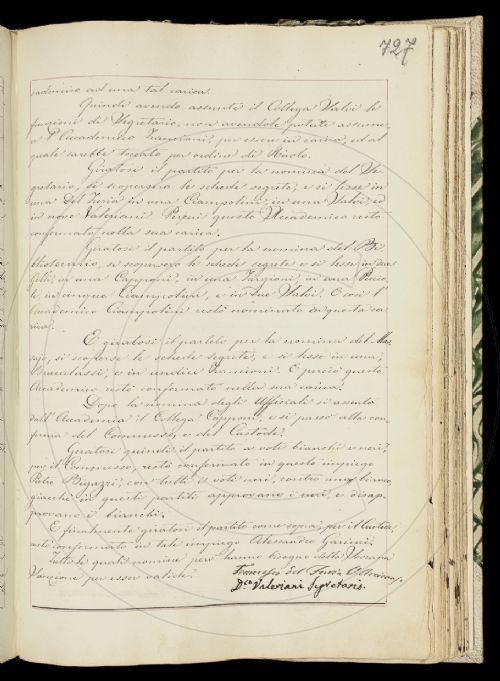 727
cademico ad una tal carica.
Quindi avendo assunte il Collega Valvi le
funzioni di Segretario, non avendole potute assume
re l'Accademico Zannoni, per essere in carica, ed al
quale sarebbe toccato per ordine di Ruolo.
Giratosi il partito per la nomina del Se
gretario, si scoprirono le schede segrete, e si lesse in
una Del Furia, in una Ciampolini, in una Valvi, ed
in nove Valeriani. Perciò questo Accademico restò
confermato nella sua carica.
Giratosi il partito per la nomina del Bi
bliotecario, si scopersero le schede segrete e si lesse in due
in una Capponi, in una Targioni, in una
in cinque Ciampolini, e in due Valvi. E così l'
Accademico Ciampolini restò nominato in questa ca
rica.
E giratosi il partito per la nomina del Mas
sajo, si scoperse le schede segrete, e si lesse in una,
e in undici E perciò questo
Accademico restò confermato nella sua carica.
Dopo la nomina degli Uffiziali si assentò
dall'Accademia il Collega Capponi, e si passò alla con
ferma del Commesso, e del Custode.
Giratosi quindi il partito a voti bianchi e neri,
per il Commesso, restò confermato in questo impiego
Pietro Bigazzi, con tutti i voti neri, contro uno bianco,
giacchè in questi partiti approvano i neri, e disap
provano i bianchi.
E finalmente giratosi il partito come sopra, per il Custode,
restò confermato in tale impiego Alessandro Garinei.
Tutte le quali nomine però hanno bisogno della Sovrana
Sanzione per esser valide.
Francesco del Furia
D.co Valeriani Segretario.